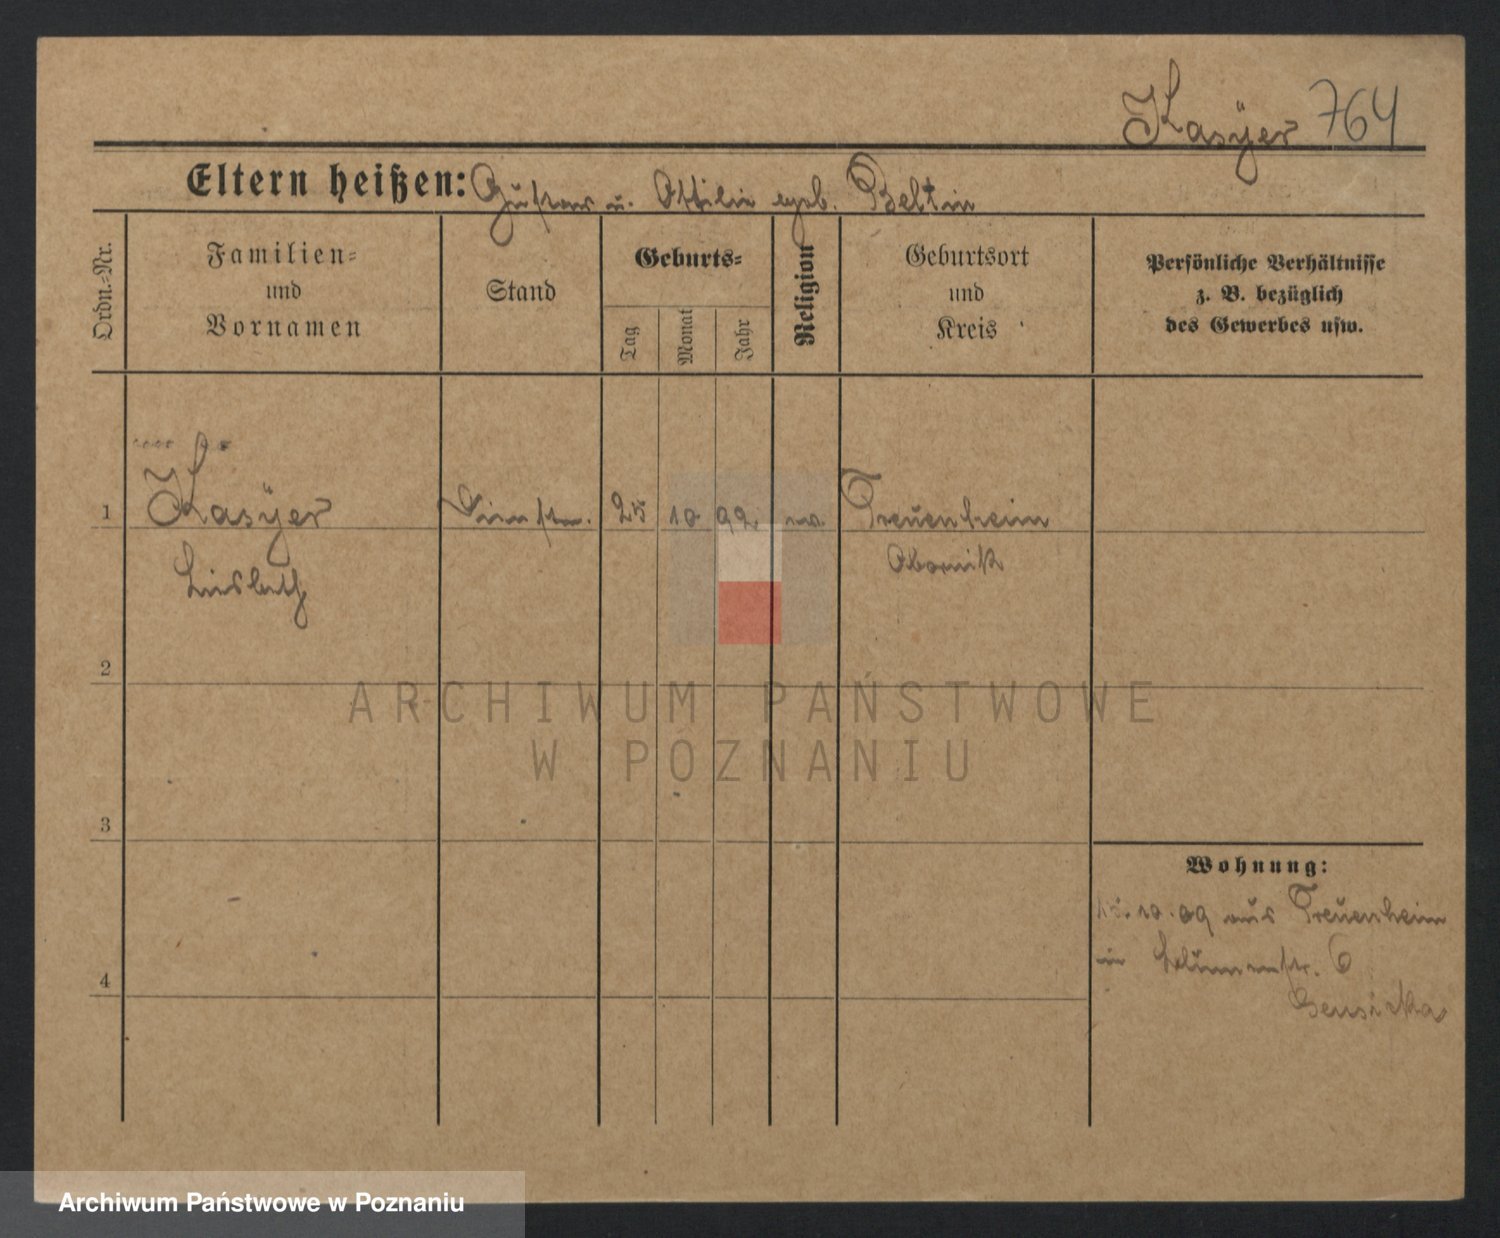 Kasÿer 764
Eltern heißen: Gustav u. Ottilie geb. Beltin
Ordn.-Nr.
Familien-
und
Vornamen
Stand
Geburts-
Tag
Monat
Jahr
Religion
Geburtsort
und
Kreis
Persönliche Verhältnisse
z. B. bezüglich
des Gewerbes usw.
1 Kasÿer Dienstm. 25 10 92 ev. Treuenheim
Obornik
2
3
4
Wohnung:
15. 10. 09 aus Treuenheim
in Blumenstr. 6
ARCHIWUM PAŃSTWOWE
W POZNANIU
Archiwum Państwowe w Poznaniu